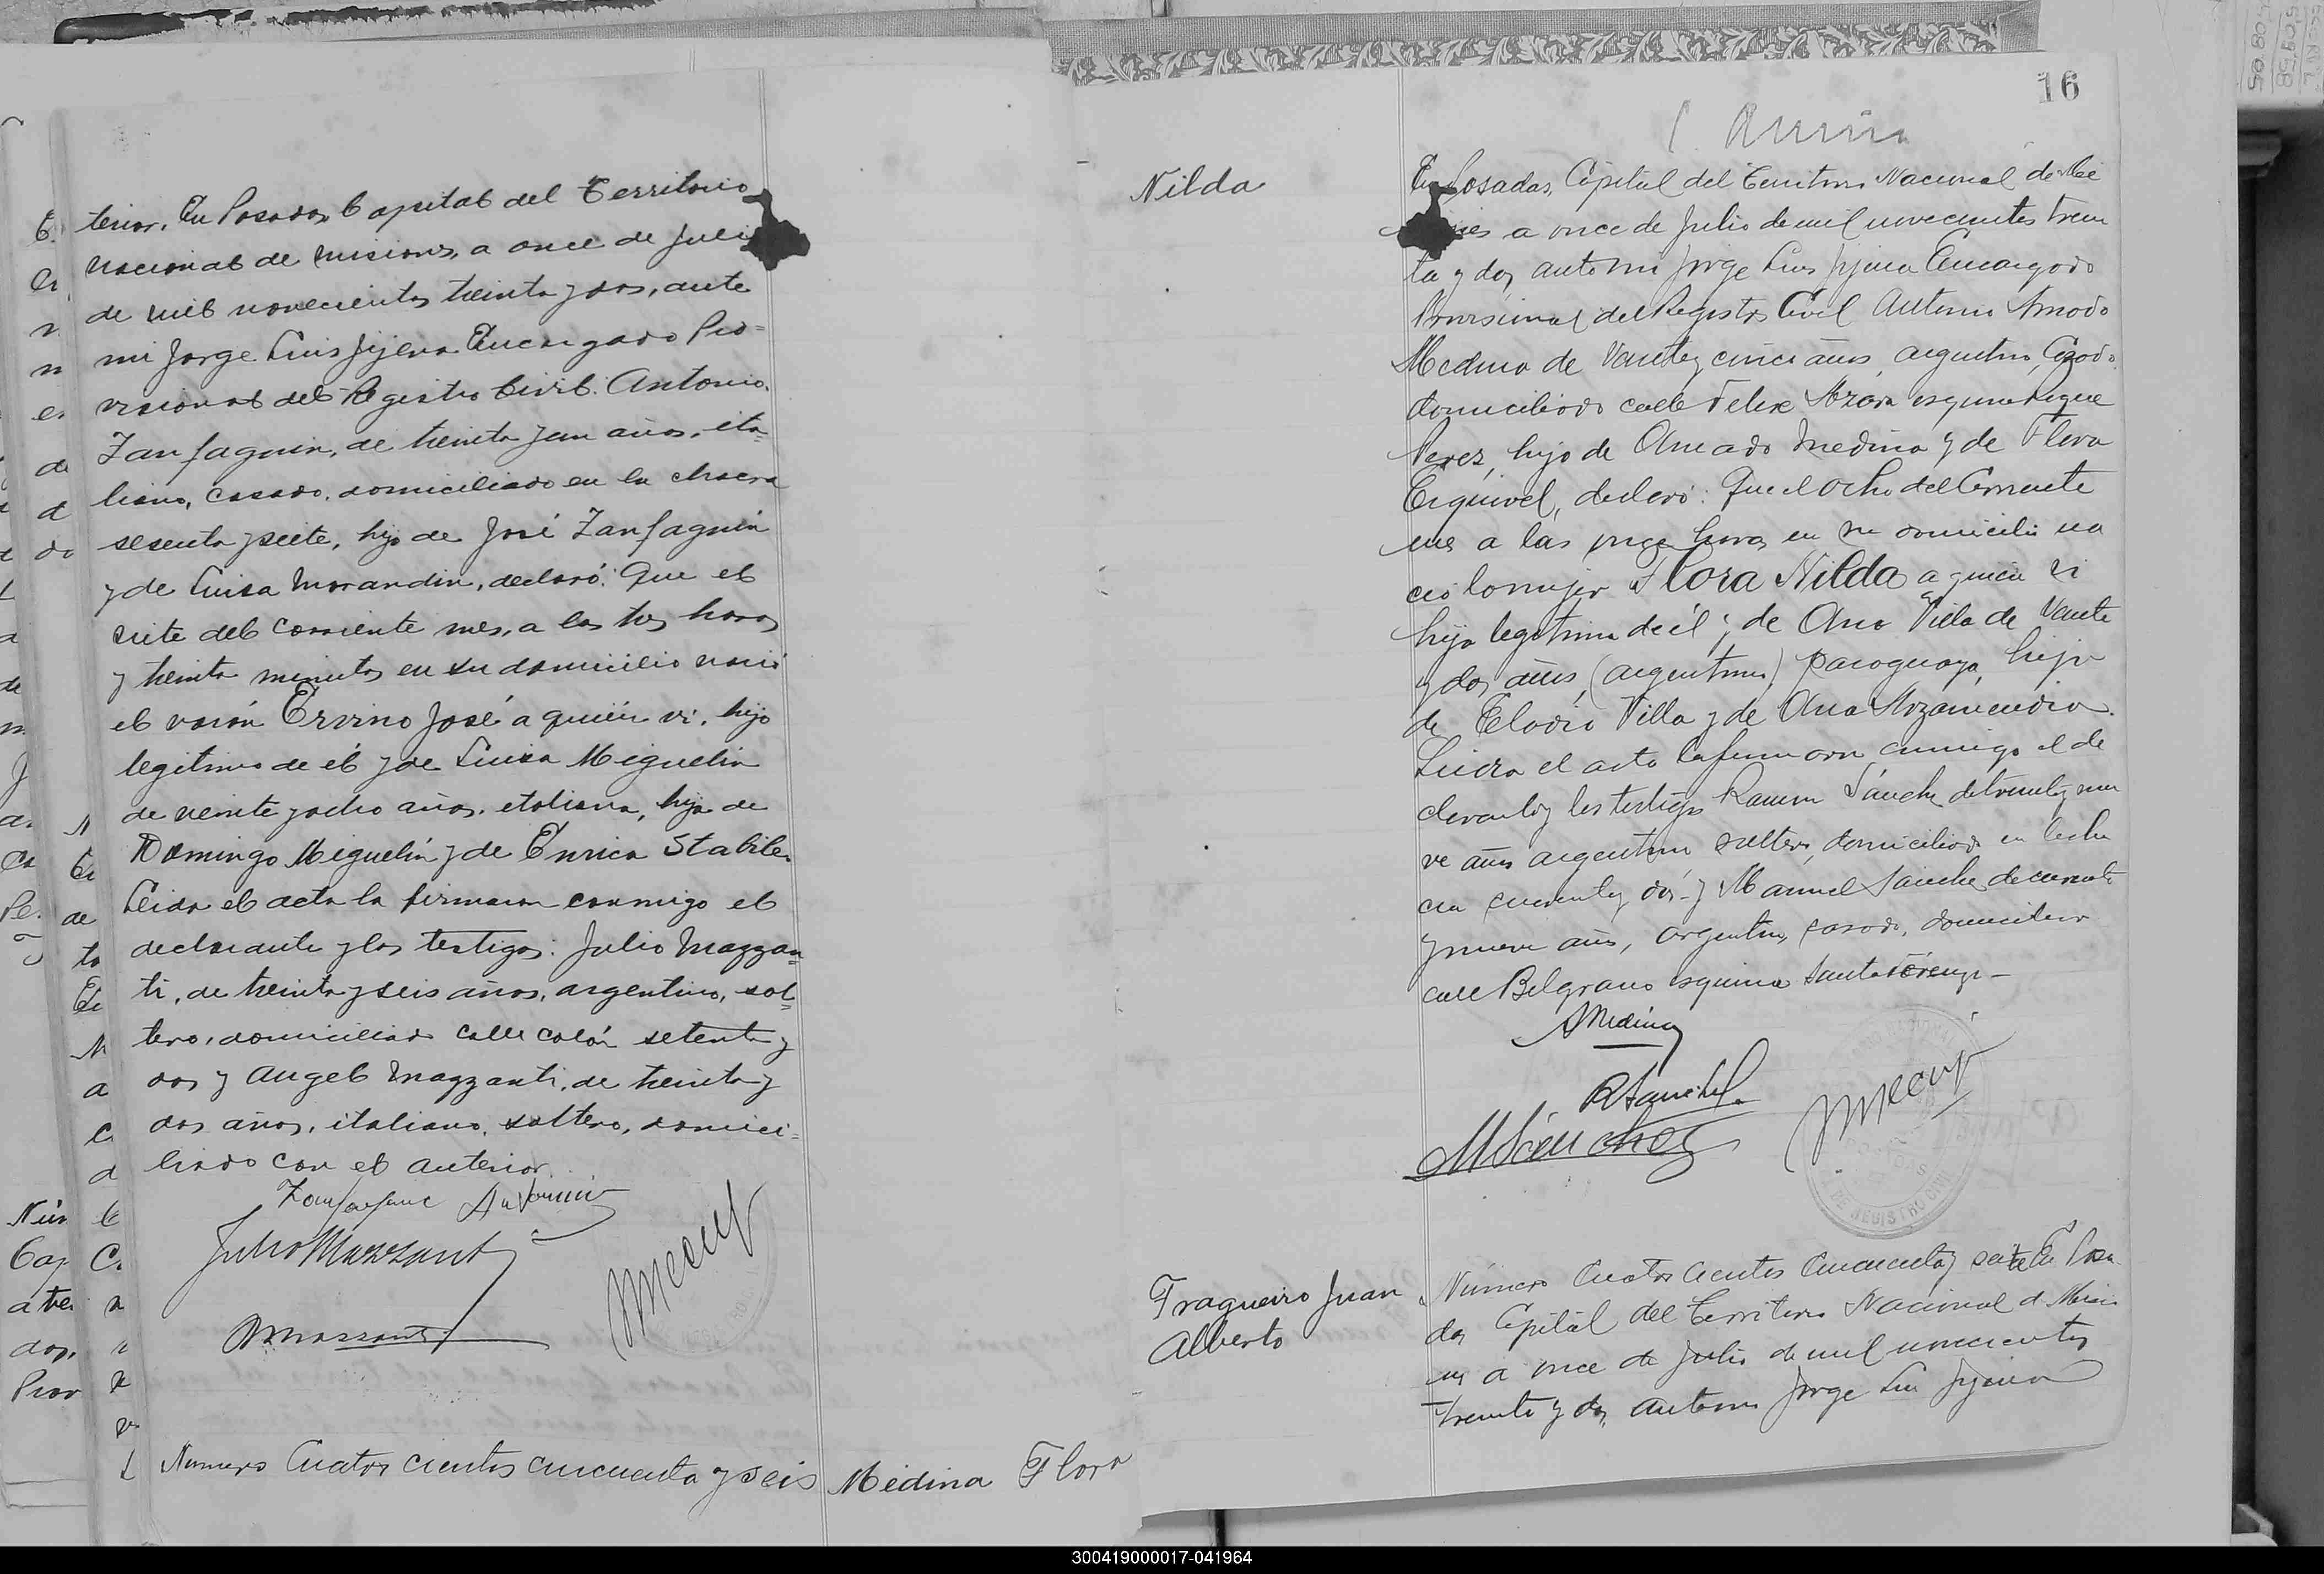 terior. En Posadas Capital del Territorio
nacional de Misiones, a once de Julio
de mil novecientos treinta y dos, ante
mi Jorge Luis Jijena Encargado Pro=
visional del Registro Civil. Antonio
Zanfagnin, de treinta y un años, ita=
liano, casado, domiciliado en la chacra
sesenta y siete, hijo de José Zanfagnin
y de Luisa Morandin, declaró: Que el
siete del corriente mes, a las tres horas
y treinta minutos en su domicilio nació
el varón Ervino José a quién vi, hijo
legítimo de él y de Luisa Miguelin
de veinte y ocho años, italiana, hija de
Domingo Miguelin y de Enrica Stabile.
Leida el acta la firmaron conmigo el
declarante y los testigos: Julio Mazzan=
ti, de treinta y seis años, argentino, sol=
tero, domiciliado calle colón setenta y
dos y Angel Mazzanti, de treinta y
dos años, italiano, soltero, domici=
liado con el anterior.
Zanfagnin Antonio
Julio Mazzanti
AMazzanti
Numero Cuatro cientos cincuenta y seis Medina Flora
16
Nilda
En Posadas, Capital del Territorio Nacional de Mi
nes a once de Julio de mil novecientos trein
ta y dos, ante mi Jorge Luis Jijena Encargado
Provisional del Registro Civil Antonio Amado
Medina de Veinte y cinco años, argentino, Casado,
domiciliado calle Felix Azara esquina Roque
Perez, hijo de Amado Medina y de Flora
Esquivel, declaró: Que el ocho del Corriente
mes a las once horas en su domicilio na
ció la mujer Flora Nilda a quien vi
hija legitima de él y de Ana Villa de Veinte
y dos años, (argentina) paraguaya, hija
de Eladio Villa y de Ana
Leida el acta la firmaron conmigo el de
clarante y los testigos Ramon Sánchez de treinta y nue
ve años argentino soltero, domiciliado en la cha
cra cuarenta y dos y Manuel Sanchez de cuarenta
y nueve años, argentino, casado, domiciliado
calle Belgrano esquina
AMedina
RSanchez
MSánchez
REGISTRO CIVIL
Fragueiro Juan
Alberto
Número Cuatro cientos Cincuenta y siete En Posa
das Capital del Territorio Nacional d Misio
nes a once de Julio de mil novecientos
treinta y dos, ante mi Jorge Luis Jijena
300419000017-041964